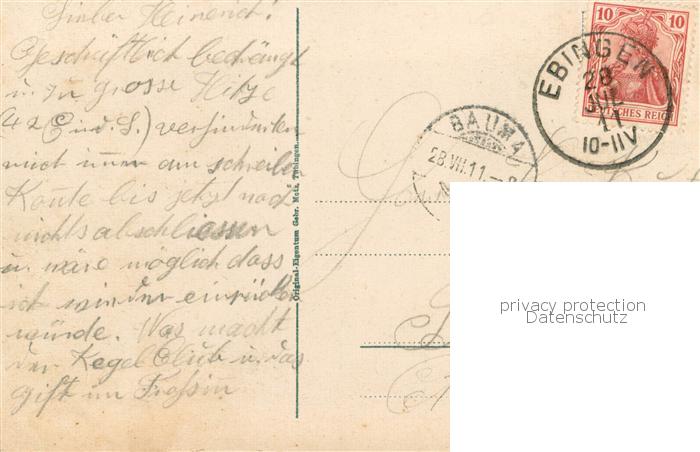 Lieber Heinerich!
Geschäftlich bedrängt
u. zu grosse Hitze
verhinderten
mich immer am schreiben
Konte bis jetzt noch
nichts abschliessen
u. wäre möglich dass
ich wieder einrücken
würde. Was macht
der Kegel Club u. das
gift im
Original-Eigentum Gebr. Metz, Tübingen.
BAUMA
28.VII.11.
10 10
DEUTSCHES REICH
EBINGEN
28
JUL
11
10-11V
privacy protection
Datenschutz